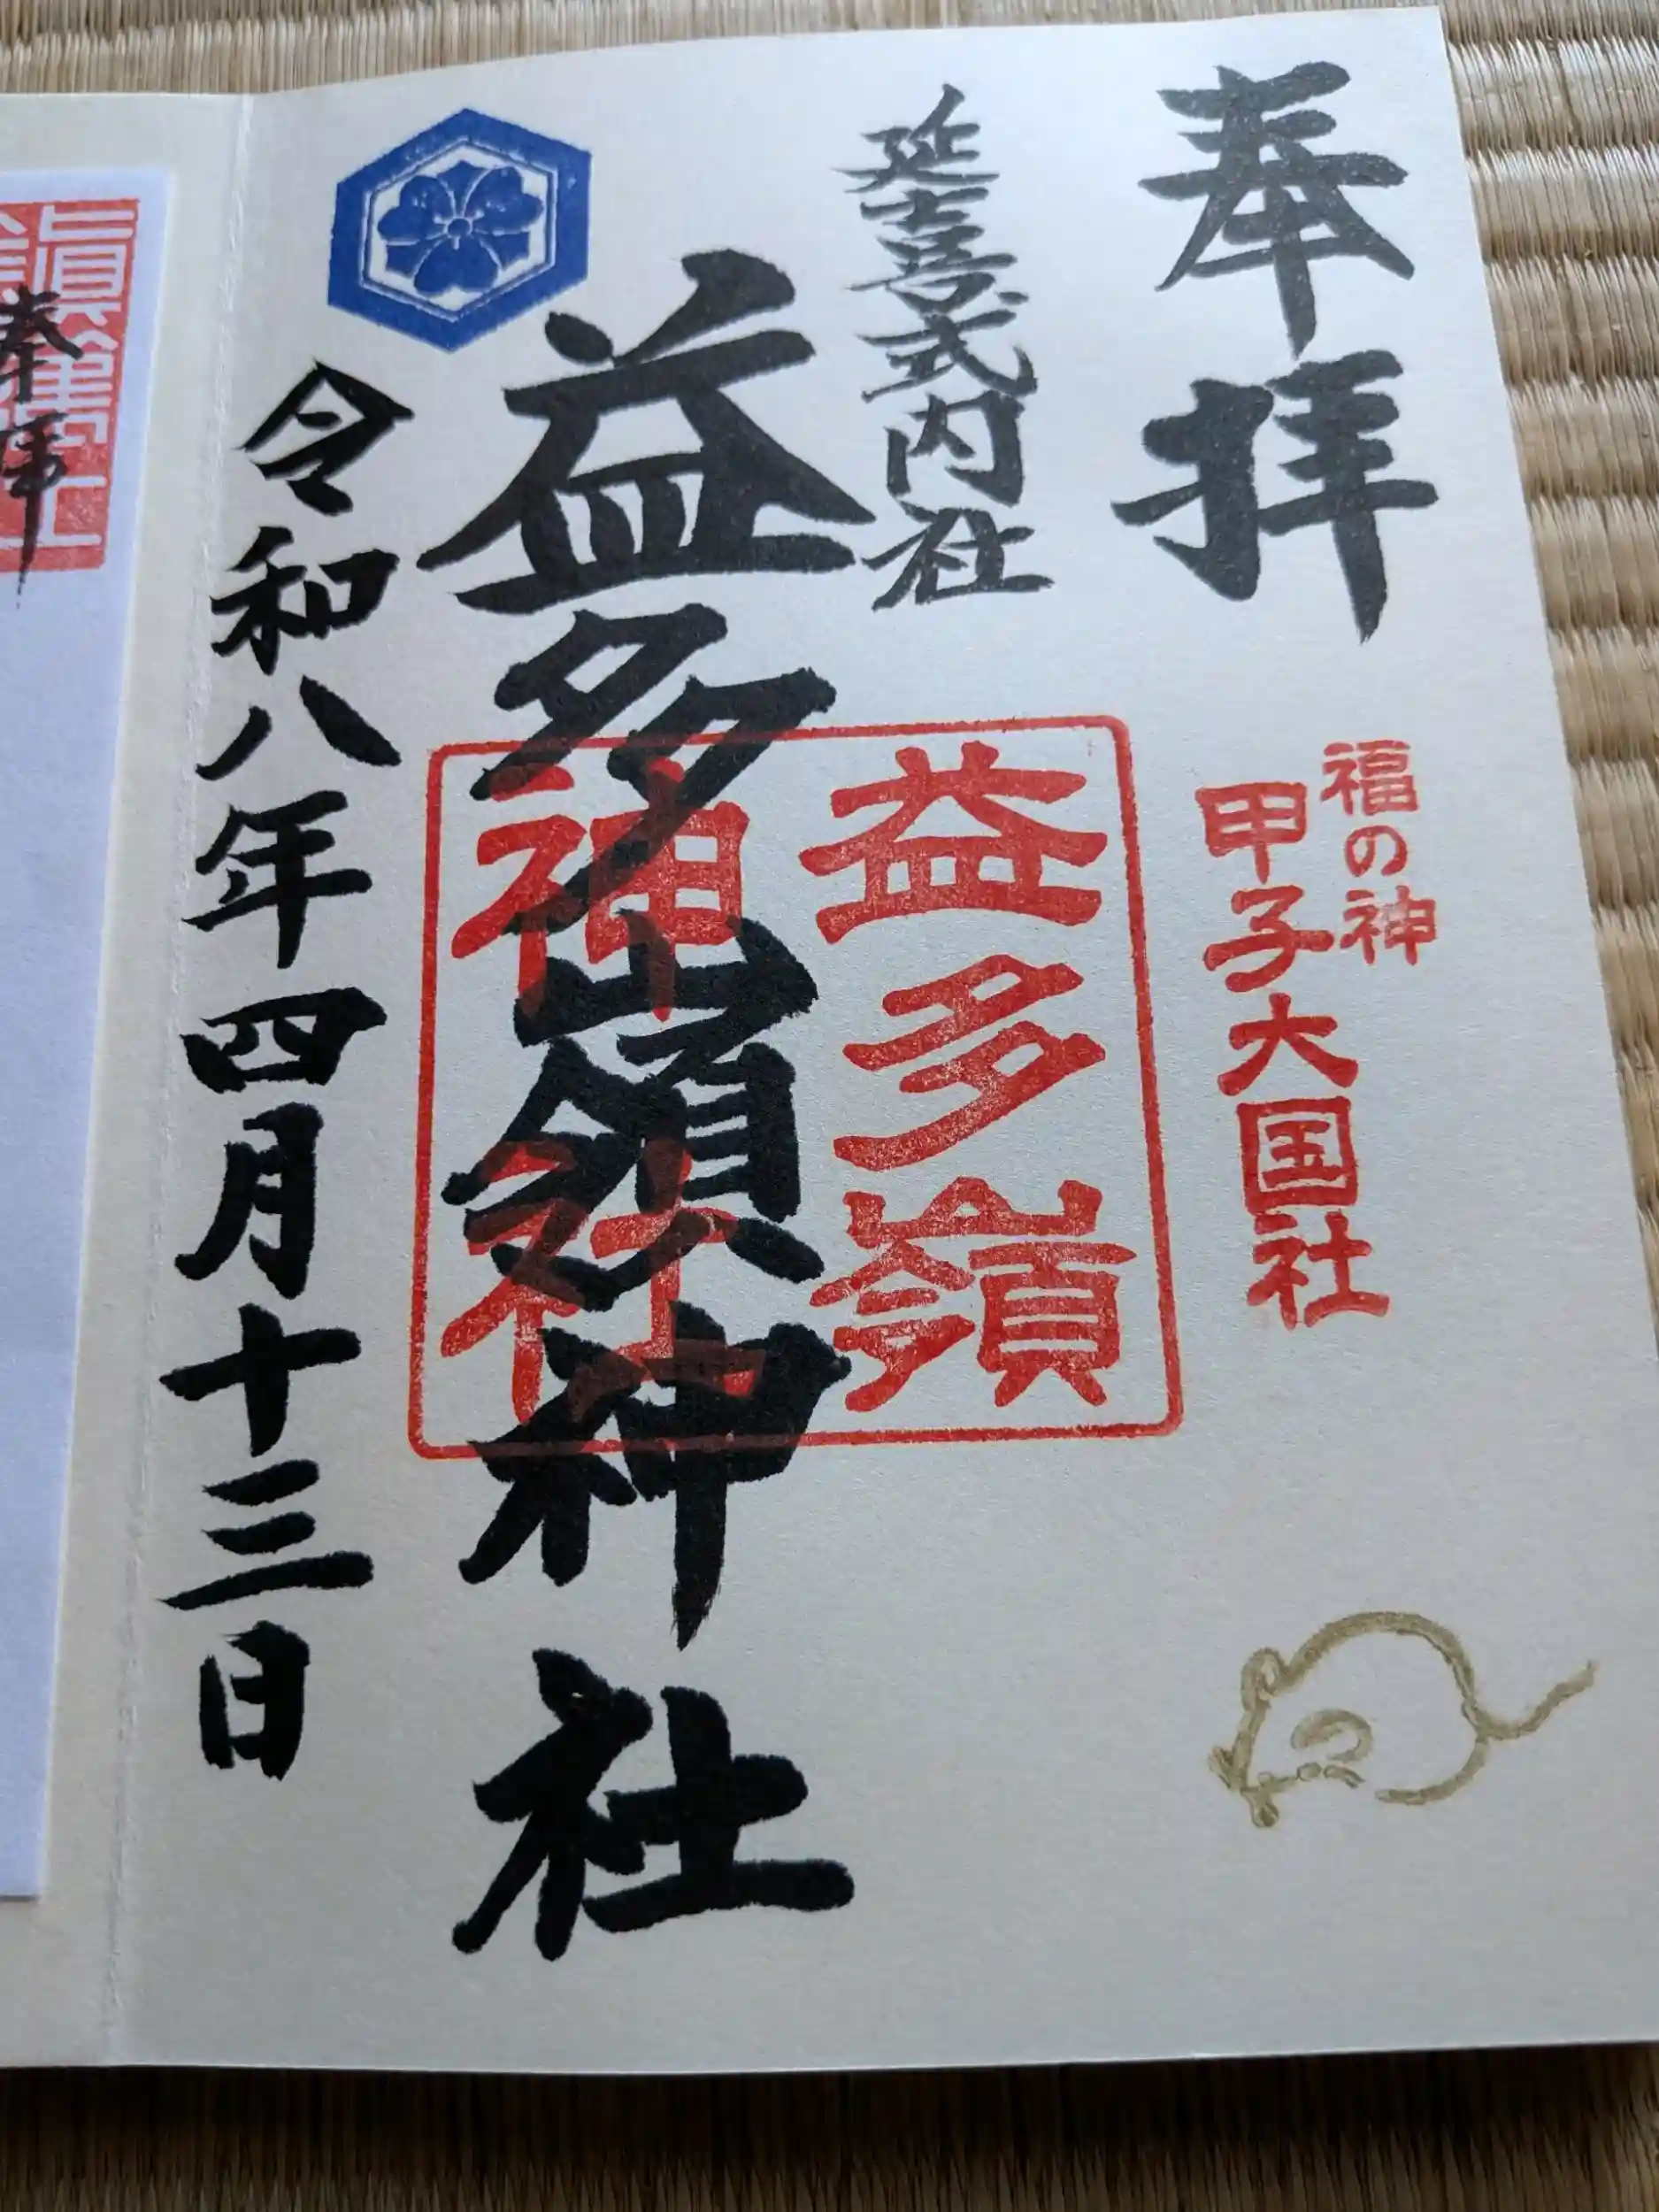 奉拝
福の神
甲子大国社
延喜式内社
益多嶺
神社
益多嶺神社
令和八年四月十三日
奉拝